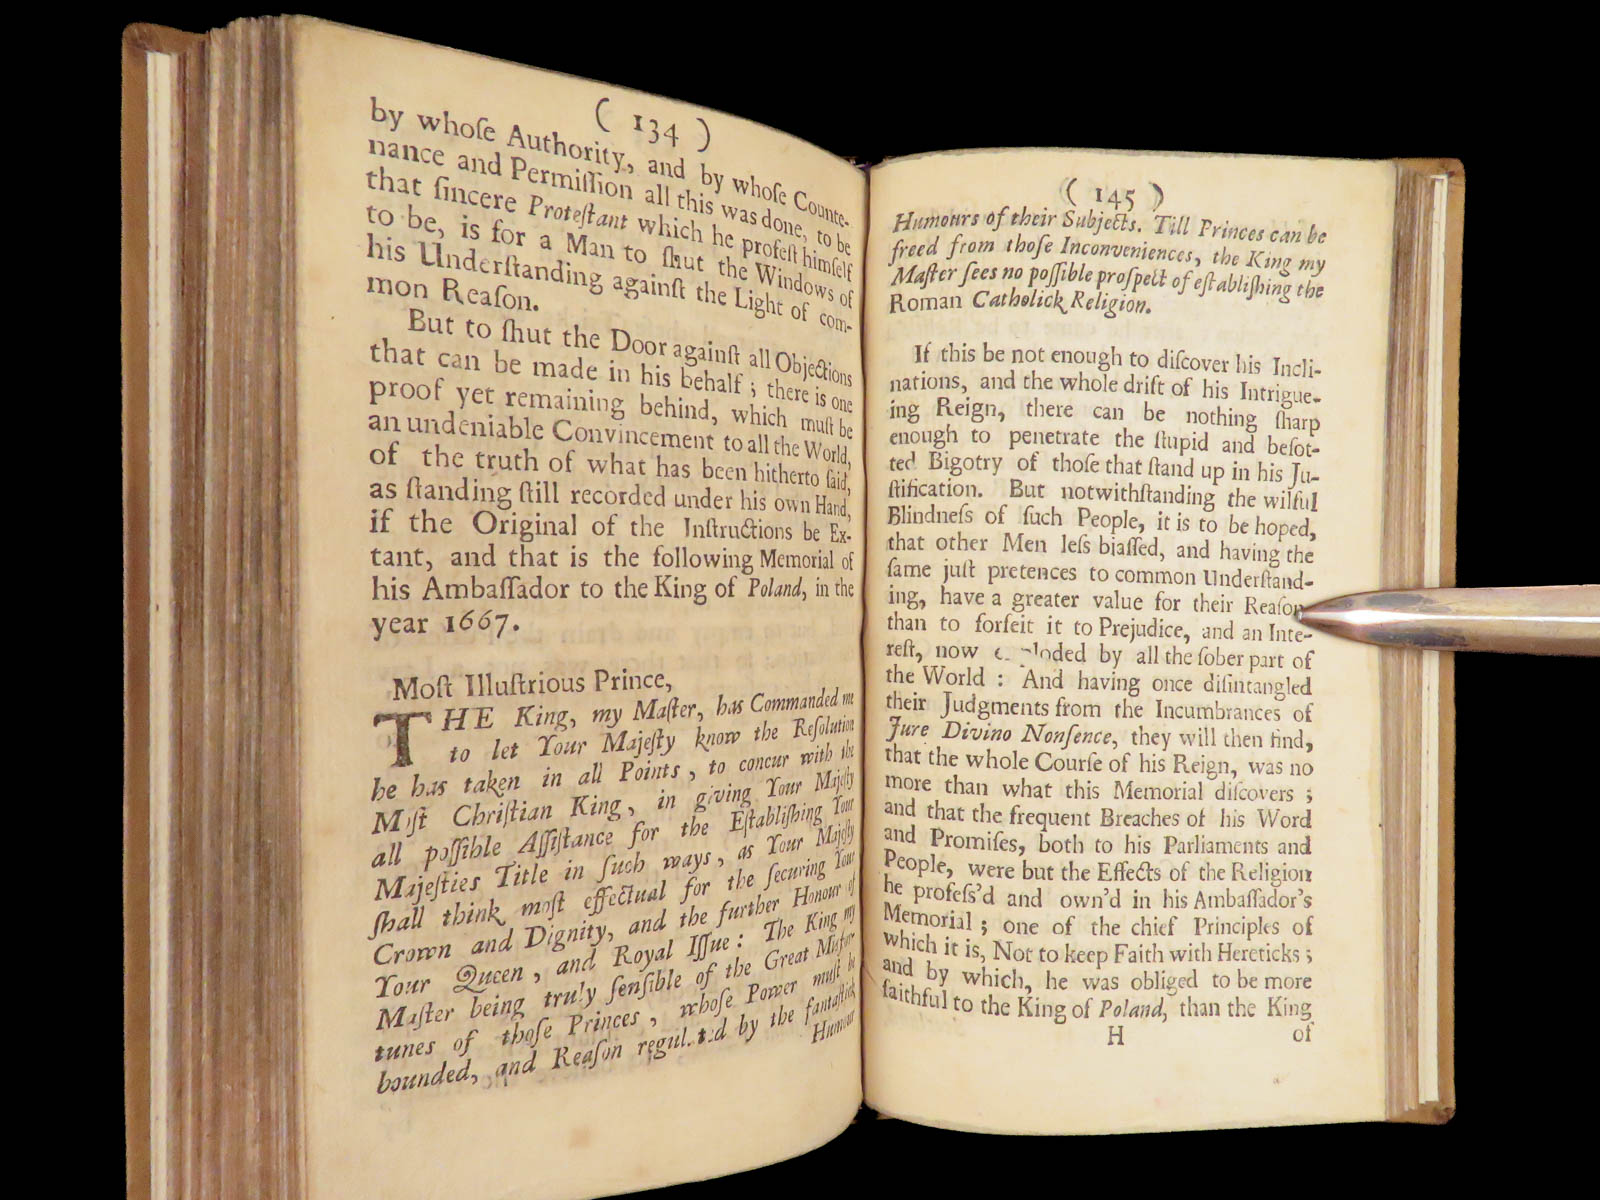 ( 134 )
by whoſe Authority, and by whoſe Counte-
nance and Permiſſion all this was done, to be
that ſincere Proteſtant which he profeſt himſelf
to be, is for a Man to ſhut the Windows of
his Underſtanding againſt the Light of com-
mon Reaſon.
But to ſhut the Door againſt all Objections
that can be made in his behalf; there is one
proof yet remaining behind, which muſt be
an undeniable Convincement to all the World,
of the truth of what has been hitherto ſaid,
as ſtanding ſtill recorded under his own Hand,
if the Original of the Inſtructions be Ex-
tant, and that is the following Memorial of
his Ambaſſador to the King of Poland, in the
year 1667.
Moſt Illuſtrious Prince,
THE King, my Maſter, has Commanded me
to let Your Majeſty know the Reſolution
he has taken in all Points, to concur with the
Moſt Chriſtian King, in giving Your Majeſty
all poſſible Aſſiſtance for the Eſtabliſhing Your
Majeſties Title in ſuch ways, as Your Majeſty
ſhall think moſt effectual for the ſecuring Your
Crown and Dignity, and the further Honour of
Your Queen, and Royal Iſſue: The King my
Maſter being truly ſenſible of the Great Misfor-
tunes of thoſe Princes, whoſe Power muſt be
bounded, and Reaſon regulated by the fantaſtick
Humour
( 145 )
Humours of their Subjects. Till Princes can be
freed from thoſe Inconveniences, the King my
Maſter ſees no poſſible proſpect of eſtabliſhing the
Roman Catholick Religion.
If this be not enough to diſcover his Incli-
nations, and the whole drift of his Intrigue-
ing Reign, there can be nothing ſharp
enough to penetrate the ſtupid and beſot-
ted Bigotry of thoſe that ſtand up in his Ju-
ſtification. But notwithſtanding the wilful
Blindneſs of ſuch People, it is to be hoped,
that other Men leſs biaſſed, and having the
ſame juſt pretences to common Underſtand-
ing, have a greater value for their Reaſon,
than to forfeit it to Prejudice, and an Inte-
reſt, now exploded by all the ſober part of
the World : And having once diſintangled
their Judgments from the Incumbrances of
Jure Divino Nonſence, they will then find,
that the whole Courſe of his Reign, was no
more than what this Memorial diſcovers ;
and that the frequent Breaches of his Word
and Promiſes, both to his Parliaments and
People, were but the Effects of the Religion
he profeſs'd and own'd in his Ambaſſador's
Memorial ; one of the chief Principles of
which it is, Not to keep Faith with Hereticks ;
and by which, he was obliged to be more
faithful to the King of Poland, than the King
H of